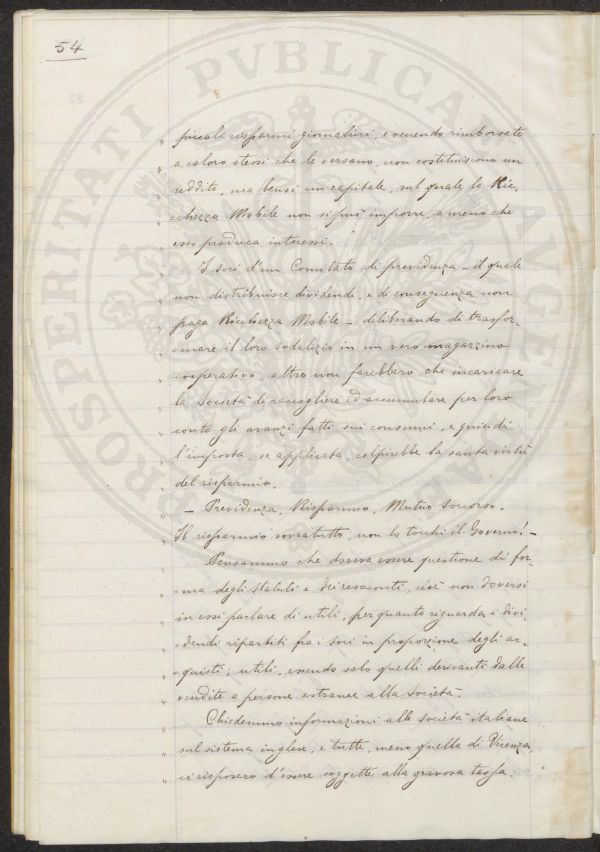 54
PROSPERITATI PVBLICAE AVGENDAE
„ piccoli risparmi giornalieri, e venendo rimborsate
„ a coloro stessi che le versano, non costituiscono un
„ reddito, ma bensì un capitale, sul quale la Ric-
„ -chezza Mobile non si può imporre, a meno che
„ esso produca interessi.
„ I soci d'un Comitato di previdenza - il quale
„ non distribuisce dividendi, e di conseguenza non
„ paga Ricchezza Mobile - deliberando di trasfor-
„ -mare il loro sodalizio in un vero magazzino
„ cooperativo, altro non farebbero che incaricare
„ la Società di raccogliere ed accumulare per loro
„ conto gli avanzi fatti sui consumi, e quindi
„ l'imposta, se applicata, colpirebbe la santa virtù
„ del risparmio.
„ - Previdenza, Risparmio, Mutuo Soccorso.
„ Il risparmio sovratutto, non lo tocchi il Governo! -
„ Pensammo che doveva essere questione di for-
„ -ma degli Statuti e dei resoconti, cioè non doversi
„ in essi parlare di utili, per quanto riguarda i divi-
„ -dendi ripartiti fra i soci in proporzione degli ac-
„ -quisti; utili, essendo solo quelli derivanti dalle
„ vendite a persone estranee alla Società.
„ Chiedemmo informazioni alle Società italiane
„ sul sistema inglese, e tutte, meno quella di Vicenza,
„ ci risposero d'essere soggette alla gravosa tassa.